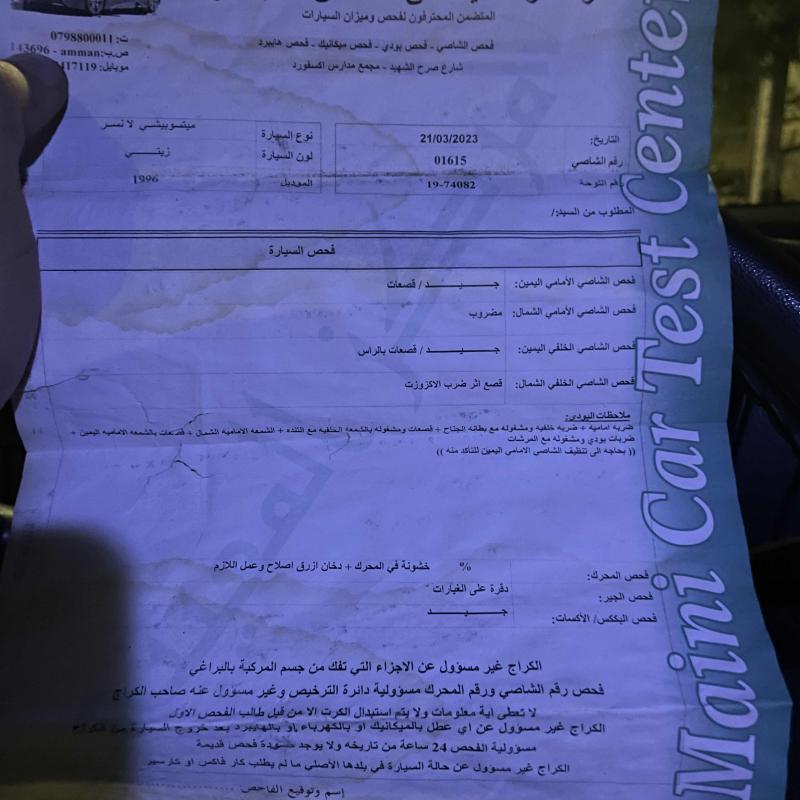 المتضمن المحترفون لفحص وميزان السيارات
ت: 0798800011
فحص الشاصي - فحص بودي - فحص ميكانيك - فحص هايبرد
ص.ب: amman - 143696
شارع صرح الشهيد - مجمع مدارس اكسفورد
موبايل: 417119
التاريخ: 21/03/2023
نوع السيارة ميتسوبيشي لانسر
رقم الشاصي 01615
لون السيارة زيتــــي
رقم اللوحة 19-74082
الموديل 1996
المطلوب من السيد:/
فحص السيارة
فحص الشاصي الأمامي اليمين: جـــيـــــــد / قصعات
فحص الشاصي الأمامي الشمال: مضروب
فحص الشاصي الخلفي اليمين: جـــيـــــــد / قصعات بالراس
فحص الشاصي الخلفي الشمال: قصع اثر ضرب الاكزوزت
ملاحظات البودي:
ضربه اماميه + ضربه خلفيه ومشغوله مع بطانه الجناح + قصعات ومشغوله بالشمعه الخلفيه مع التنده + الشمعه الاماميه الشمال + قصعات بالشمعه الاماميه اليمين +
ضربات بودي ومشغوله مع المرشات
(( بحاجه الى تنظيف الشاصي الامامي اليمين للتأكد منه ))
فحص المحرك: % خشونة في المحرك + دخان ازرق اصلاح وعمل اللازم
فحص الجير: دفرة على الغيارات
فحص البكس/ الأكسات: جـــيـــــــد
الكراج غير مسؤول عن الاجزاء التي تفك من جسم المركبة بالبراغي
فحص رقم الشاصي ورقم المحرك مسؤولية دائرة الترخيص وغير مسؤول عنه صاحب الكراج
لا تعطى أية معلومات ولا يتم استبدال الكرت الا من قبل طالب الفحص الاول
الكراج غير مسؤول عن اي عطل بالميكانيك او بالكهرباء او بالهايبرد بعد خروج السيارة من الكراج
مسؤولية الفحص 24 ساعة من تاريخه ولا يوجد مسودة فحص قديمة
الكراج غير مسؤول عن حالة السيارة في بلدها الأصلي ما لم يطلب كار فاكس او كارسير
إسم وتوقيع الفاحص:
Maini Car Test Center